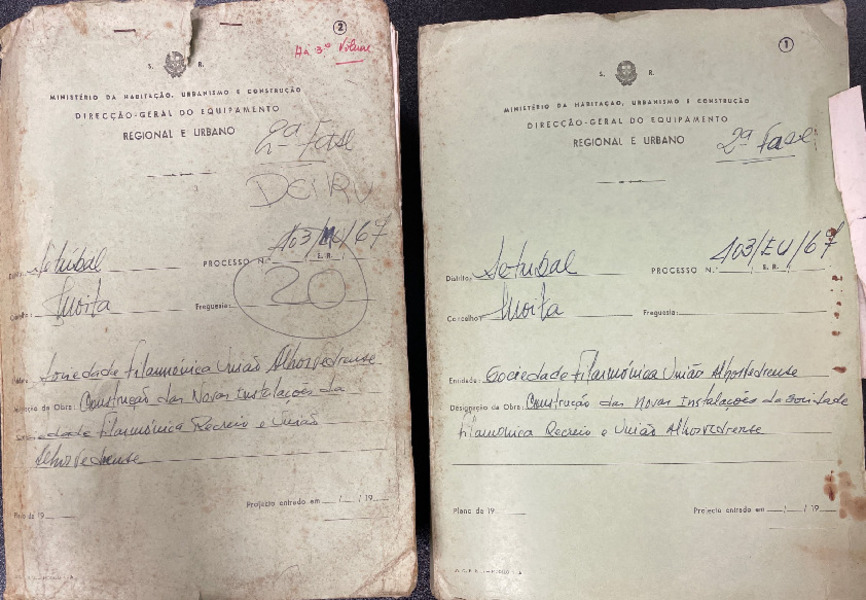 2
Há 3º Volume
S. R.
MINISTÉRIO DA HABITAÇÃO, URBANISMO E CONSTRUÇÃO
DIRECÇÃO-GERAL DO EQUIPAMENTO
REGIONAL E URBANO
2ª Fase
DERRU
Setúbal
PROCESSO N.º 103/MU/67
E. R.
Moita
Freguesia:
20
Sociedade Filarmónica União Alhosvedrense
da Obra: Construção das Novas Instalações da
Sociedade Filarmónica Recreio e União
Alhosvedrense
de 19
Projecto entrado em / / 19
1
S. R.
MINISTÉRIO DA HABITAÇÃO, URBANISMO E CONSTRUÇÃO
DIRECÇÃO-GERAL DO EQUIPAMENTO
REGIONAL E URBANO
2ª Fase
Distrito: Setubal
PROCESSO N.º 103/EU/67
E. R.
Concelho: Moita
Freguesia:
Entidade: Sociedade Filarmónica União Alhosvedrense
Designação da Obra: Construção das Novas Instalações da Sociedade
Filarmónica Recreio e União Alhosvedrense
Plano de 19
Projecto entrado em / / 19